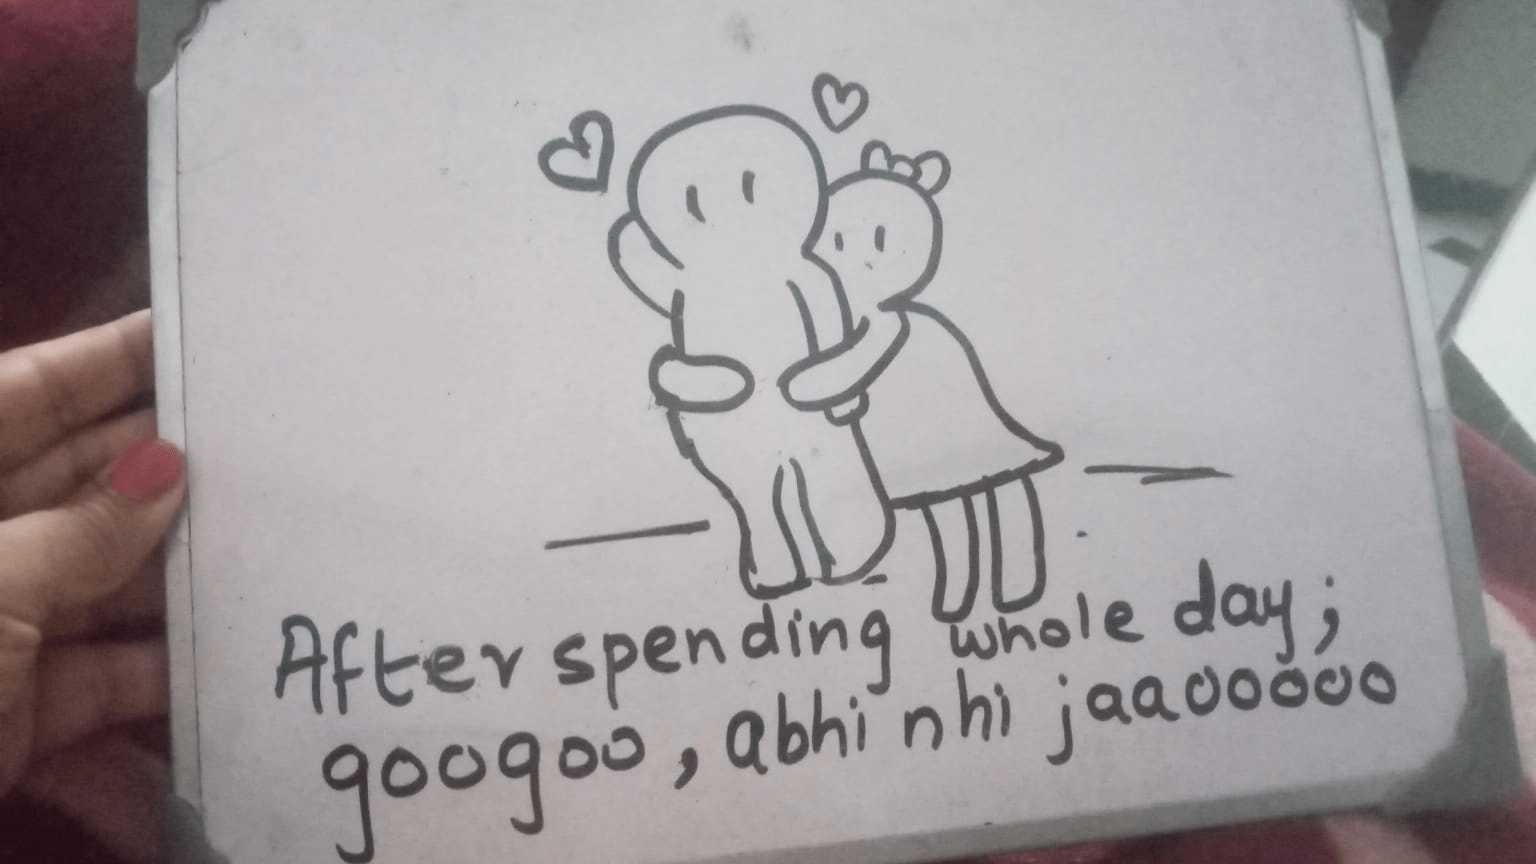 After spending whole day;
googoo, abhi nhi jaaooooo